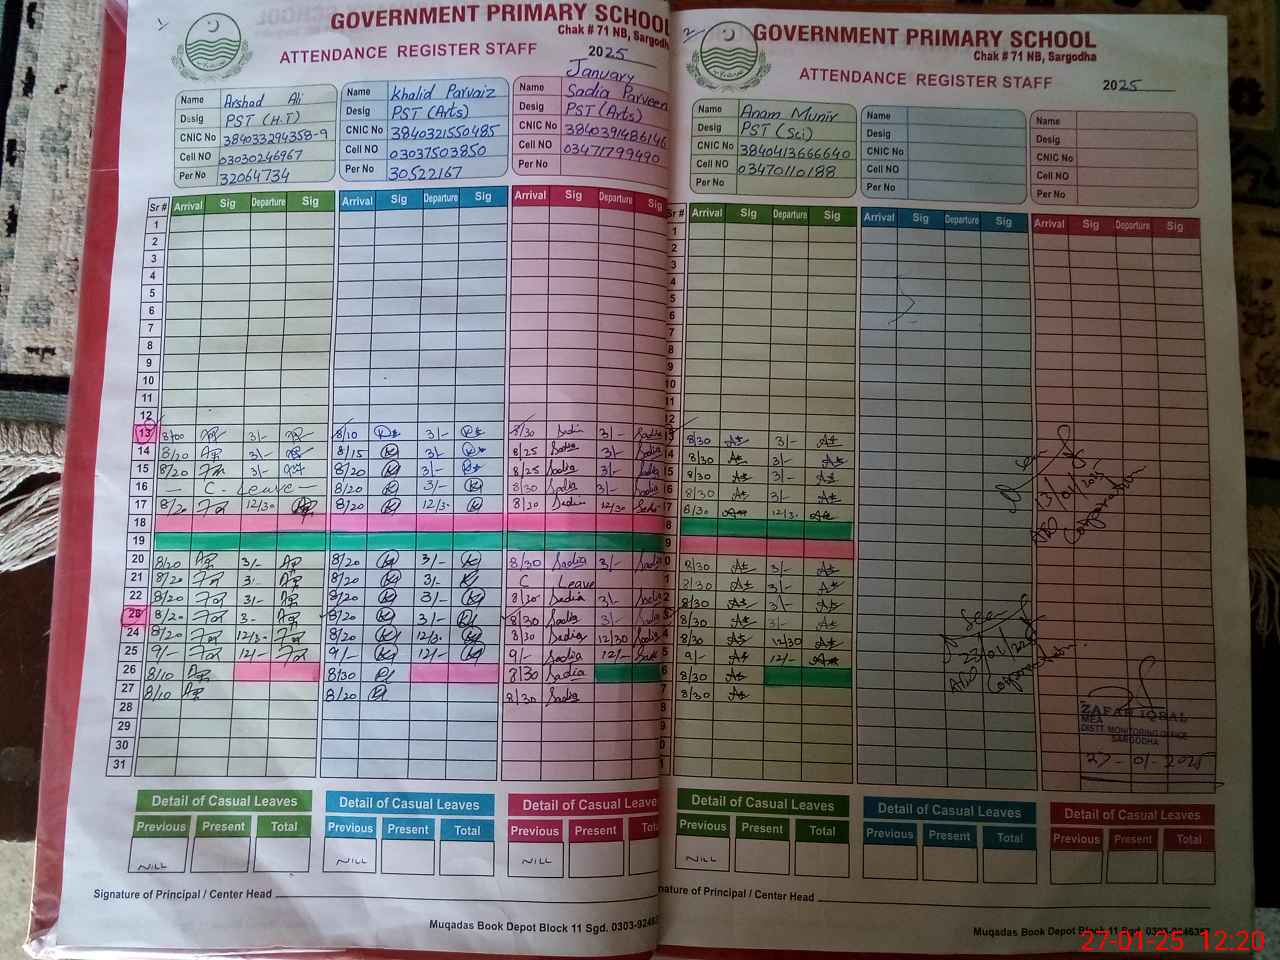 GOVERNMENT PRIMARY SCHOOL
Chak # 71 NB, Sargodha
ATTENDANCE REGISTER STAFF 2025
January
Name Arshad Ali
Desig PST (H.T)
CNIC No 384033294358-9
Cell NO 03030246967
Per No 32064734
Name Khalid Parvaiz
Desig PST (Arts)
CNIC No 3840321550485
Cell NO 03037503850
Per No 30522167
Name Sadia Parveen
Desig PST (Arts)
CNIC No 3840391486146
Cell NO 03471799490
Per No
Sr # Arrival Sig Departure Sig Arrival Sig Departure Sig Arrival Sig Departure Sig
1
2
3
4
5
6
7
8
9
10
11
12
13 8/00 3/- 8/10 3/- 8/30 Sadia 3/- Sadia
14 8/20 3/- 8/15 3/- 8/25 Sadia 3/- Sadia
15 8/20 3/- 8/20 3/- 8/25 Sadia 3/- Sadia
16 — C - Leave — 8/20 3/- 8/30 Sadia 3/- Sadia
17 8/20 12/30 8/20 12/30 8/20 Sadia 12/30 Sadia
18
19
20 8/20 3/- 8/20 3/- 8/30 Sadia 3/- Sadia
21 8/20 3/- 8/20 3/- C Leave
22 8/20 3/- 8/20 3/- 8/30 Sadia 3/- Sadia
23 8/20 3/- 8/20 3/- 8/30 Sadia 3/- Sadia
24 8/20 12/30 8/20 12/30 8/30 Sadia 12/30 Sadia
25 9/- 12/- 9/- 12/- 9/- Sadia 12/- Sadia
26 8/10 8/30 8/30 Sadia
27 8/10 8/20 8/30 Sadia
28
29
30
31
Detail of Casual Leaves Detail of Casual Leaves Detail of Casual Leaves
Previous Present Total Previous Present Total Previous Present Total
NILL NILL NILL
Signature of Principal / Center Head
Muqadas Book Depot Block 11 Sgd.
GOVERNMENT PRIMARY SCHOOL
Chak # 71 NB, Sargodha
ATTENDANCE REGISTER STAFF 2025
Name Anam Munir
Desig PST (Sci)
CNIC No 3840413666640
Cell NO 03470110188
Per No
Name
Desig
CNIC No
Cell NO
Per No
Name
Desig
CNIC No
Cell NO
Per No
Sr # Arrival Sig Departure Sig Arrival Sig Departure Sig Arrival Sig Departure Sig
1
2
3
4
5
6
7
8
9
10
11
12
13 8/30 3/-
14 8/30 3/-
15 8/30 3/-
16 8/30 3/-
17 8/30 12/30
8
9
0 8/30 3/-
1 8/30 3/-
2 8/30 3/-
3 8/30 3/-
4 8/30 12/30
5 9/- 12/-
6 8/30
7 8/30
8
9
0
1
Seen
13/01/2025
AEO Corporation
See
23/01/2025
AEO Corporation
ZAFAR IQBAL
MEA
DISTT MONITORING OFFICE
SARGODHA
27-01-2025
Detail of Casual Leaves Detail of Casual Leaves Detail of Casual Leaves
Previous Present Total Previous Present Total Previous Present Total
NILL
nature of Principal / Center Head
Muqadas Book Depot Block 11 Sgd.
27-01-25 12:20